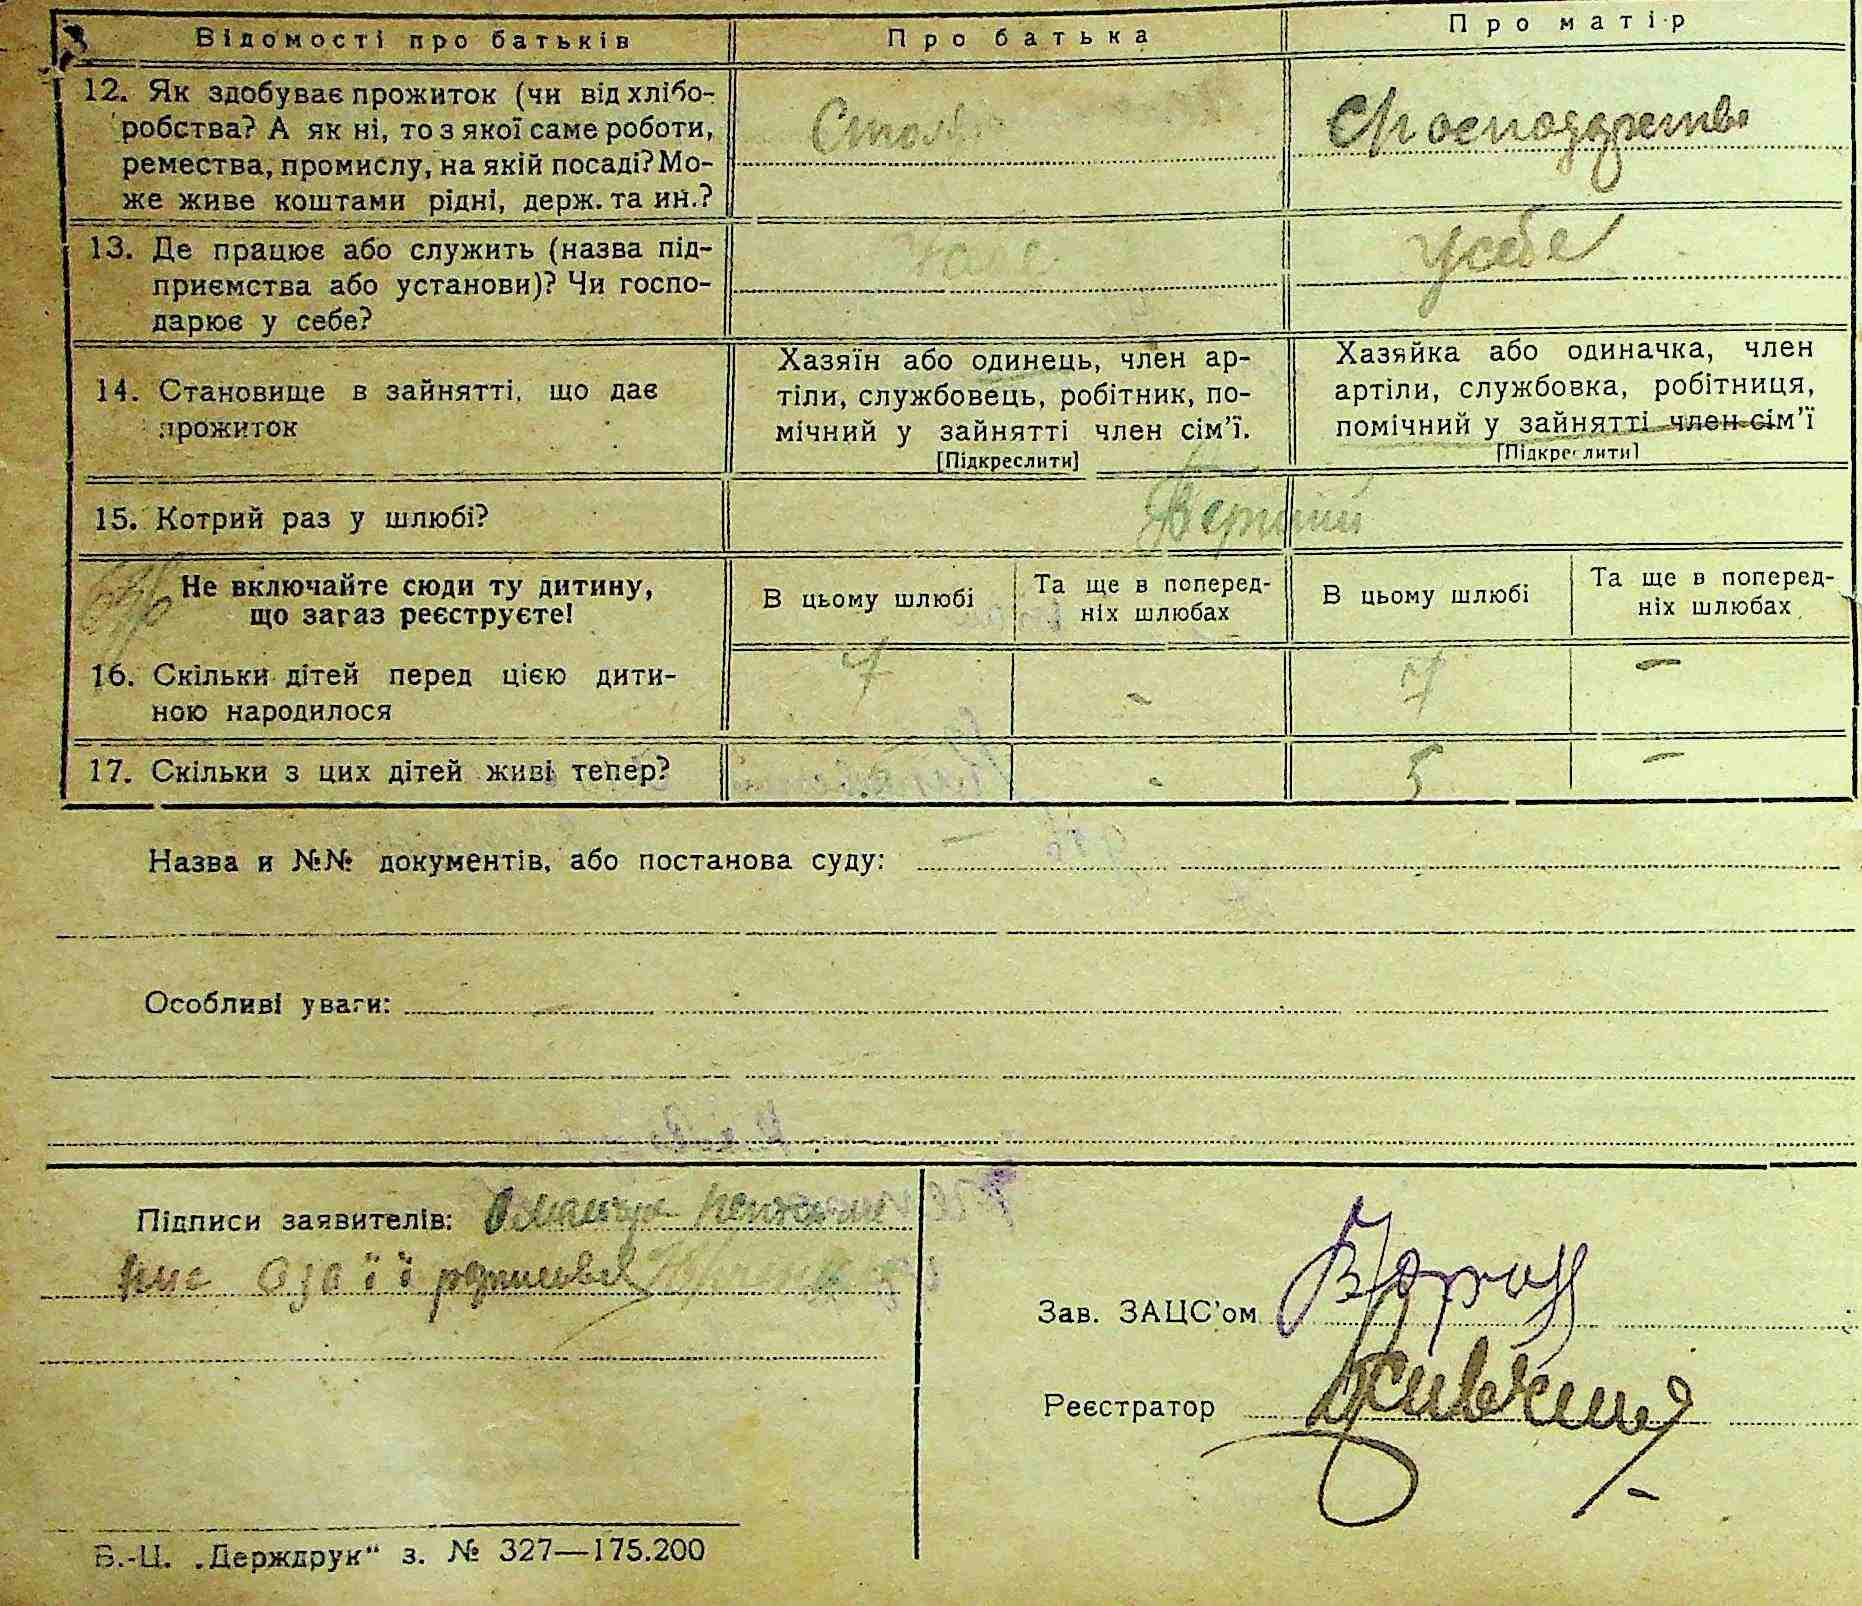 Відомості про батьків Про батька Про матір
12. Як здобуває прожиток (чи від хлібо-
робства? А як ні, то з якої саме роботи,
ремества, промислу, на якій посаді? Мо-
же живе коштами рідні, держ. та ин.?
13. Де працює або служить (назва під-
приємства або установи)? Чи госпо-
дарює у себе?
у себе
14. Становище в зайнятті, що дає
прожиток
Хазяїн або одинець, член ар-
тіли, службовець, робітник, по-
мічний у зайнятті член сім'ї.
[Підкреслити]
Хазяйка або одиначка, член
артіли, службовка, робітниця,
помічний у зайнятті член сім'ї
[Підкреслити]
15. Котрий раз у шлюбі?
Перший
Не включайте сюди ту дитину,
що зараз реєструєте!
В цьому шлюбі
Та ще в поперед-
ніх шлюбах
В цьому шлюбі
Та ще в поперед-
ніх шлюбах
16. Скільки дітей перед цією дити-
ною народилося
7 - 7 -
17. Скільки з цих дітей живі тепер?
- 5 -
Назва и №№ документів, або постанова суду: -
Особливі уваги: -
Підписи заявителів:
Зав. ЗАЦС'ом
Реєстратор
В.-Ц. „Держдрук“ з. № 327—175.200